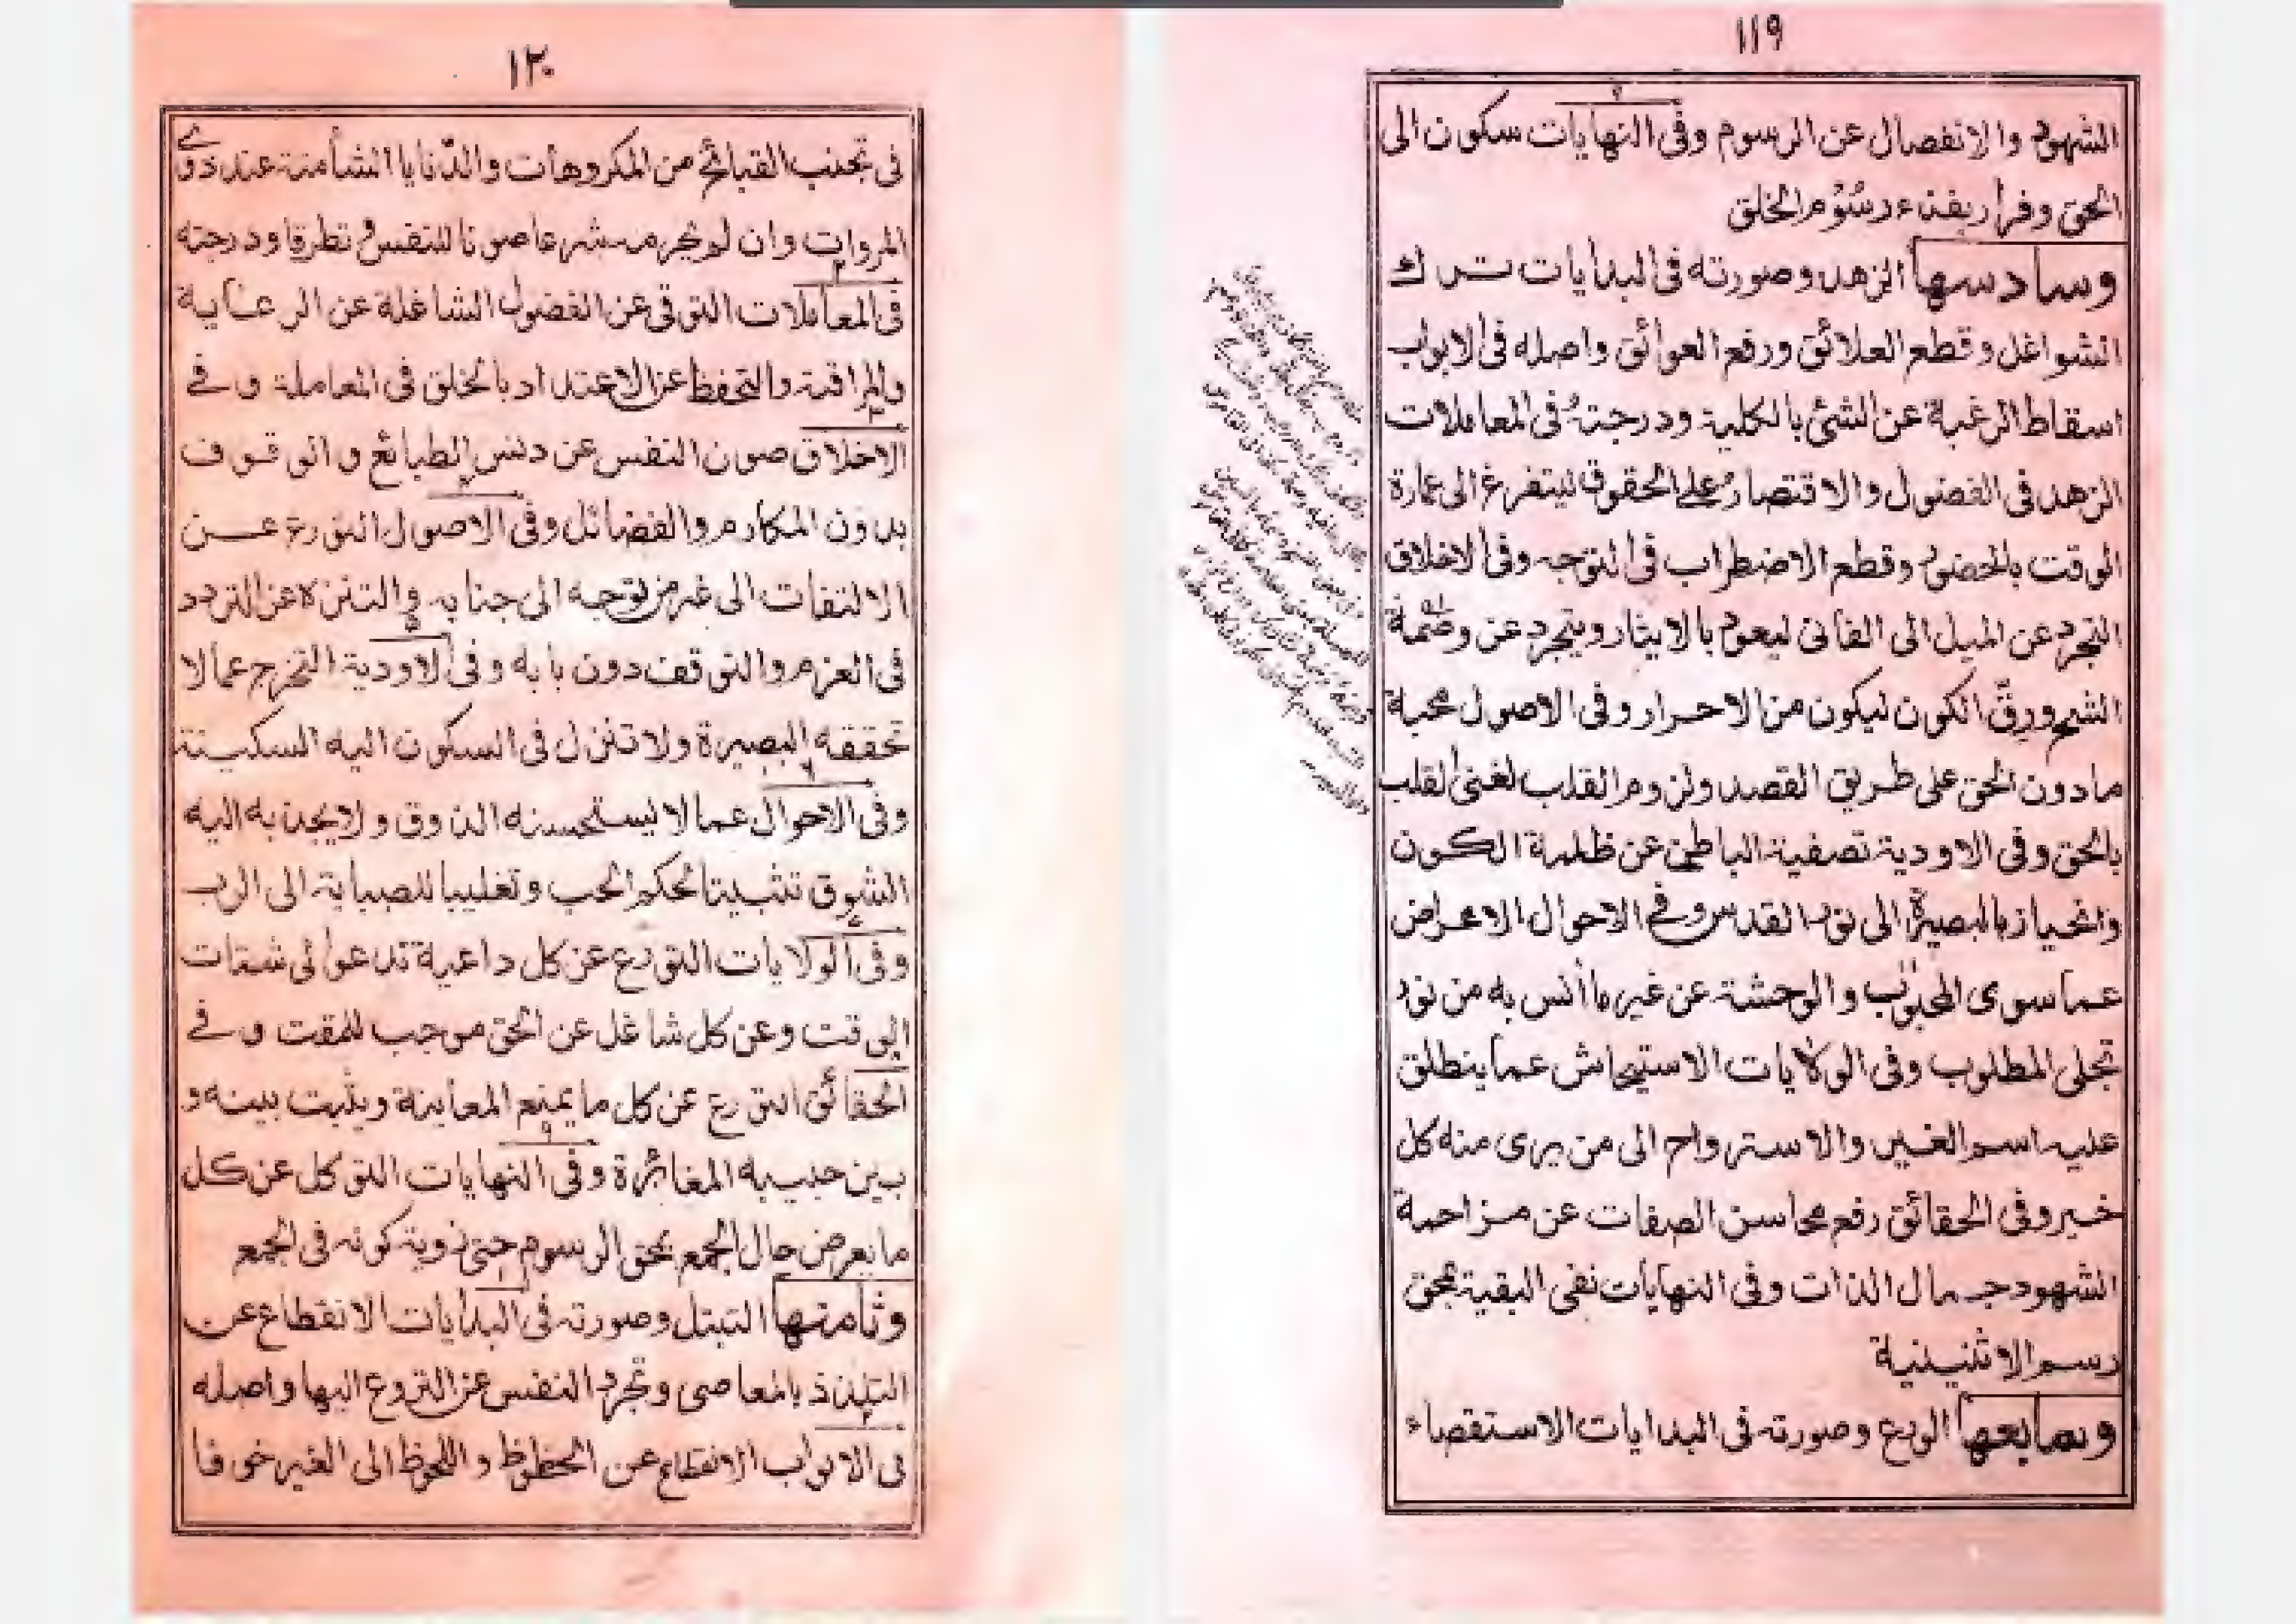 ١١٩
الشهود والانفصال عن الرسوم وفى النهايات سكون الى
الحق وفرار بفناء رسوم الخلق
وسادسها الزهد وصورته فى البدايات ترك
الشواغل وقطع العلائق ورفع العوائق واصله فى الابواب
اسقاط الرغبة عن الشئ بالكلية ودرجته فى المعاملات
الزهد فى الفضول والاقتصار على الحقوق ليتفرغ الى عمارة
الوقت بالحضور وقطع الاضطراب فى التوجه وفى الاخلاق
التجرد عن الميل الى الفانى ليعود بالايثار ويتجرد عن وصمة
الشح ورق الكون ليكون من الاحرار وفى الاصول محبة
مادون الحق على طريق القصد ولزوم القلب لغنى القلب
بالحق وفى الاودية تصفية الباطن عن ظلمة الكون
وانحياز بالبصيرة الى نور القدس وفى الاحوال الاعراض
عما سوى المحبوب والوحشة عن غير ما أنس به من نور
تجلى المطلوب وفى الولايات الاستيحاش عما ينطلق
عليه اسم الغير والاسترواح الى من يرى منه كل
خير وفى الحقائق رفع محاسن الصفات عن مزاحمة
الشهود جمال الذات وفى النهايات نفى البقية بمحق
رسم الاثنينية
وسابعها الورع وصورته فى البدايات الاستقصاء
١٢٠
فى تجنب القبائح من المكروهات والدنايا الشأمنة عند ذوے
المروات وان لم يحرمه شرعا صونا للنفس وتطرقا ودرجته
فى المعاملات التوقى عن الفضول الشاغلة عن الرعاية
والمراقبة والتحفظ عن الاعتداد بالخلق فى المعاملة وفى
الاخلاق صون النفس عن دنس الطبائع والوقوف
بدون المكارم والفضائل وفى الاصول التورع عن
الالتفات الى غير من توجه الى جنابه والتنزه عن التردد
فى العزم والتوقف دون بابه وفى الاودية التحرج عما لا
تحققه البصيرة ولا تنزل فى السكون اليه السكينة
وفى الاحوال عما لا يستحسنه الذوق ولا يجذبه اليه
الشوق تثبيتا لحكم الحب وتغليبا للصبابة الى الرب
وفى الولايات التورع عن كل داعية تدعو الى شتات
الوقت وعن كل شاغل عن الحق موجب للمقت وفى
الحقائق التورع عن كل ما يمنع المعاينة ويثبت بينه و
بين حبيبه المغائرة وفى النهايات التوكل عن كل
ما يعرض حال الجمع بحق الرسوم حتى رؤية كونه فى الجمع
وثامنها التبتل وصورته فى البدايات الانقطاع عن
التلذذ بالمعاصى وتجرد النفس عن النزوع اليها واصله
فى الابواب الانقطاع عن الحظوظ واللحوظ الى الغير خوفا